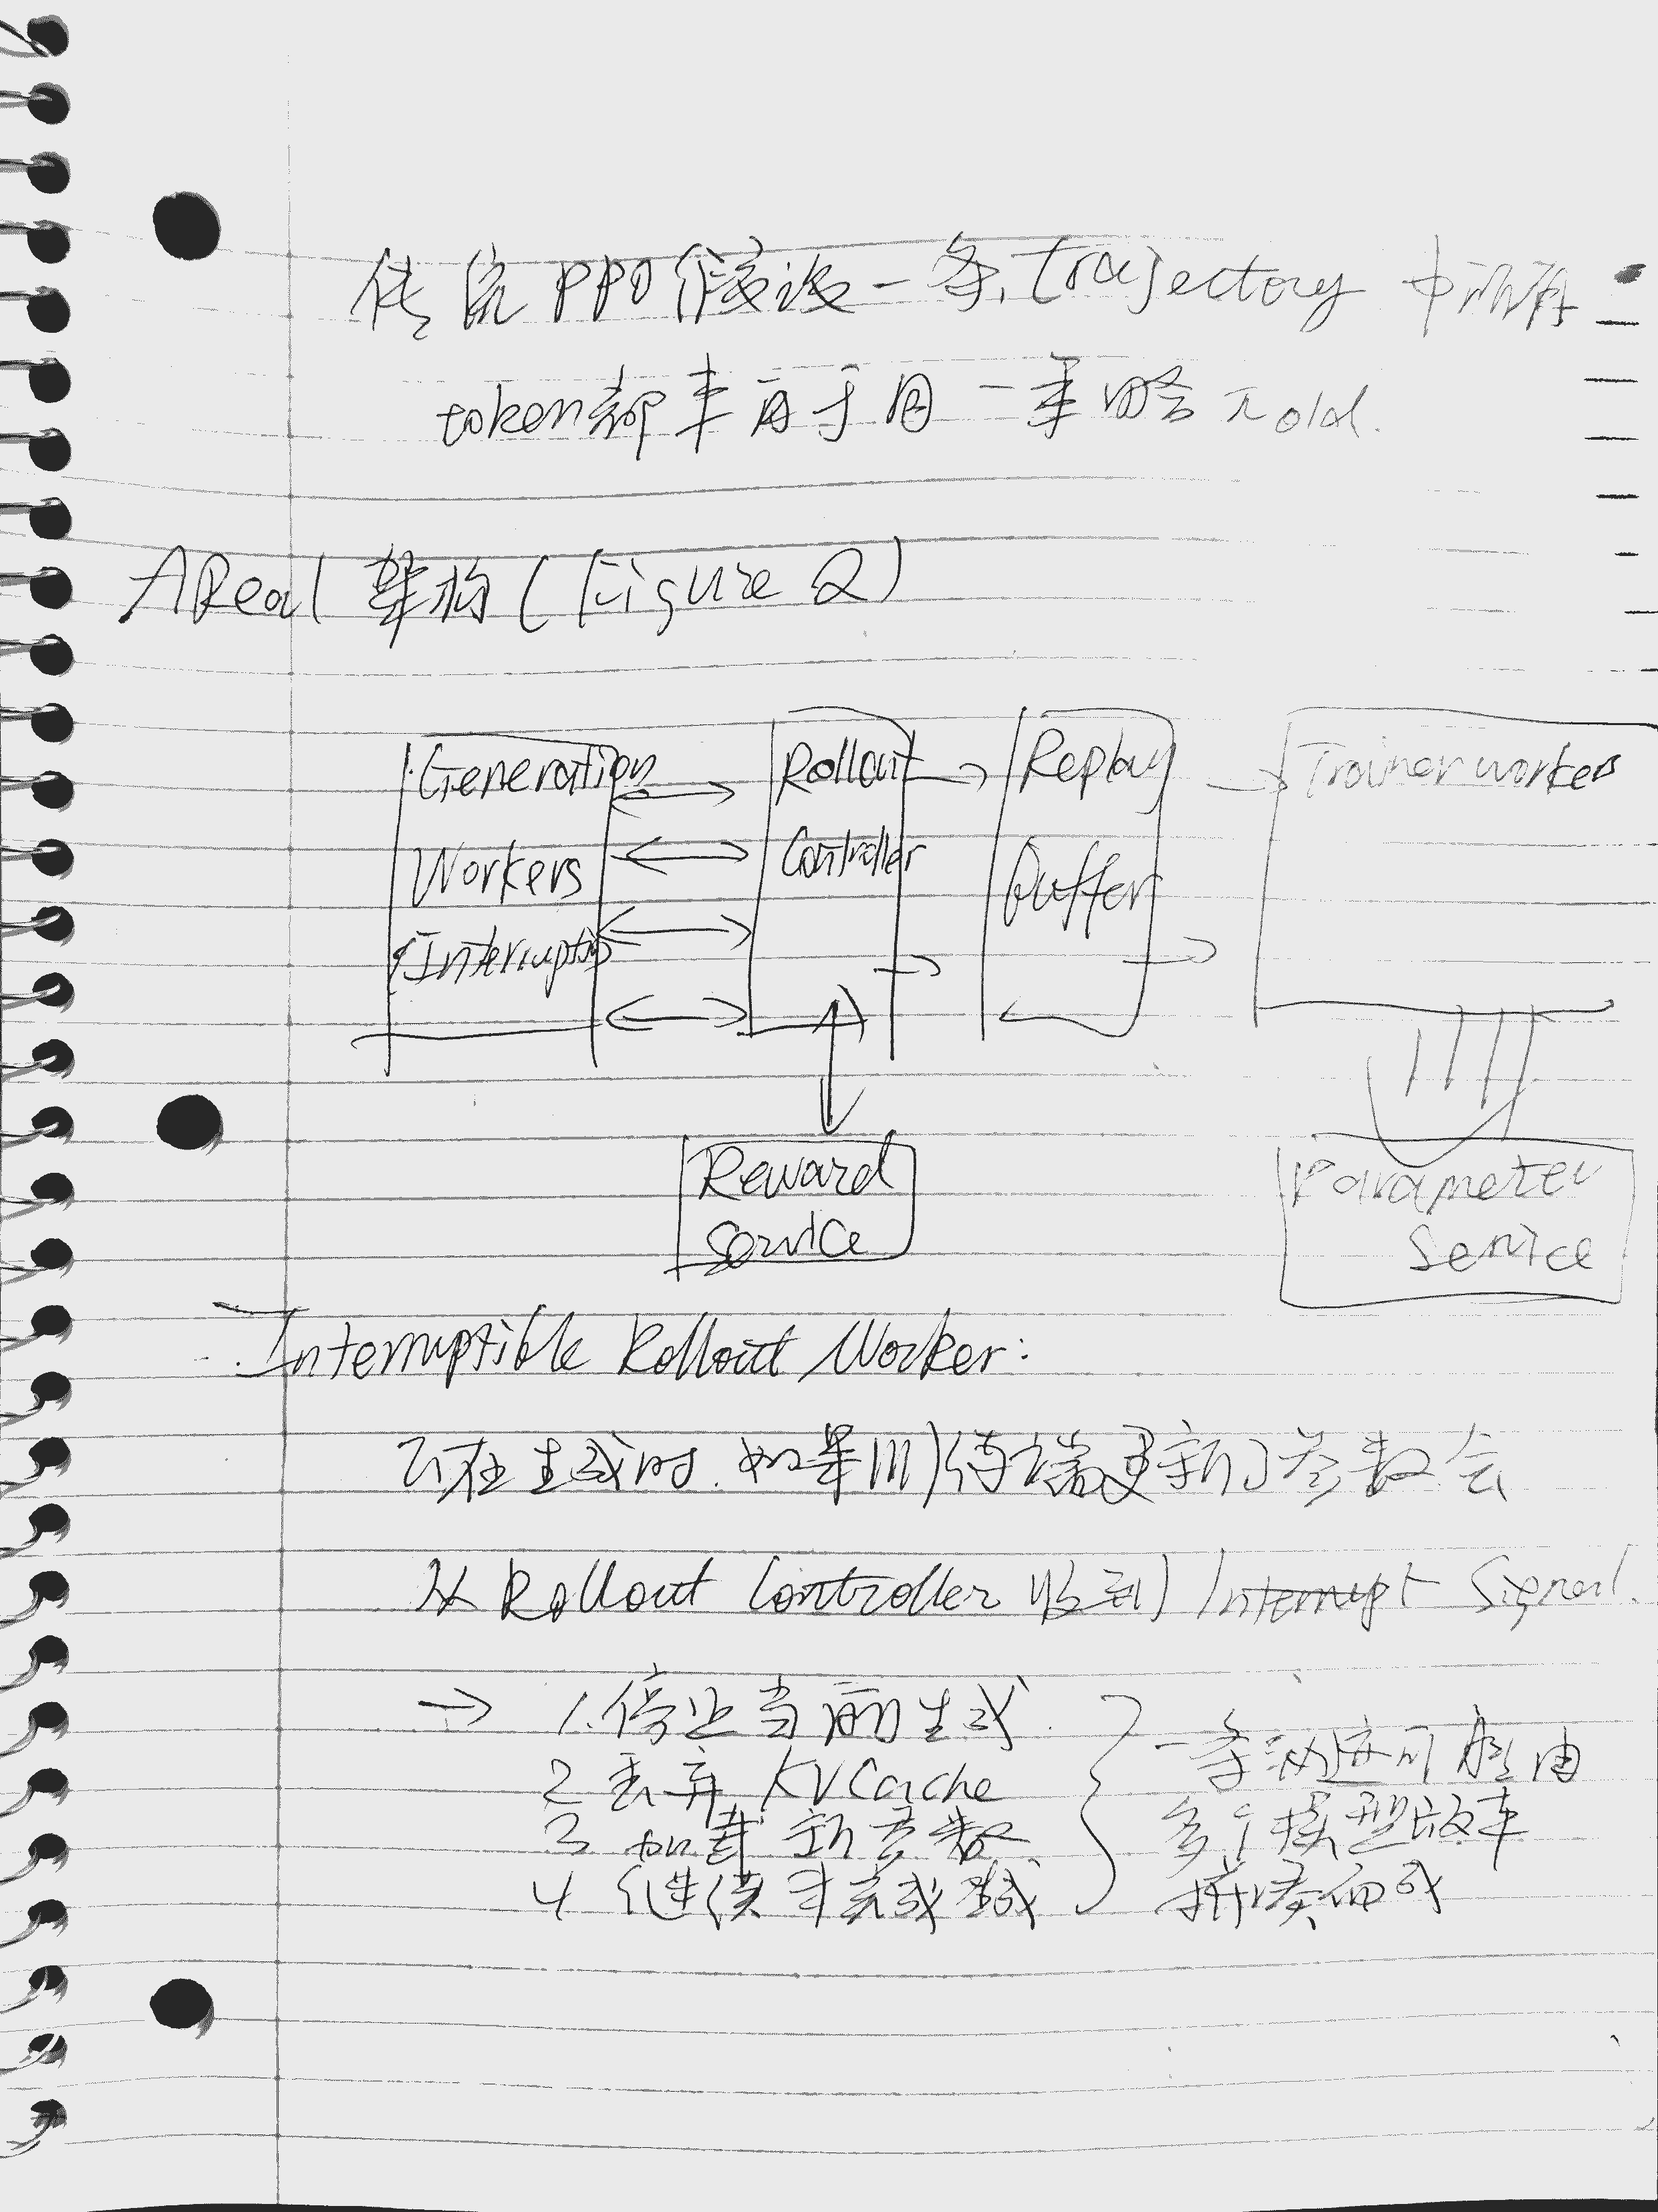 传统PPO假设一条trajectory中所有
token都来自于同一策略π old.
AReal 架构 (Figure 2)
Generation
Workers
Rollout
Controller
Replay
Buffer
Trainer workers
Reward
Service
Parameter
Service
Interruptible Rollout Worker:
在生成时.如果训练端更新了参数会
从 Rollout Controller 收到 Interrupt Signal.
→ 1.停止当前生成.
2 丢弃 KVCache
3 加载新参数
4. 继续未完成
一条轨迹可能由
多个模型版本
拼凑而成